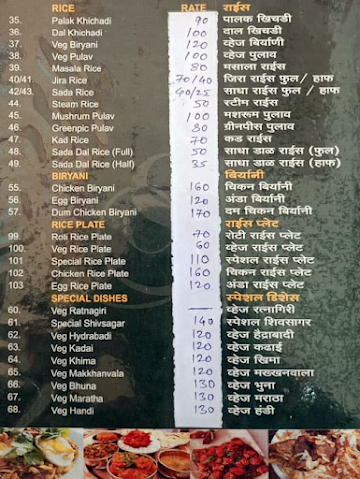 RICE RATE राईस
35. Palak Khichadi 90 पालक खिचडी
36. Dal Khichadi 100 दाल खिचडी
37. Veg Biryani 120 व्हेज बिर्याणी
38. Veg Pulav 100 व्हेज पुलाव
39. Masala Rice 80 मसाला राईस
40/41. Jira Rice 70/40 जिरा राईस फुल/ हाफ
42/43. Sada Rice 40/25 साधा राईस फुल / हाफ
44. Steam Rice 50 स्टीम राईस
45. Mushrum Pulav 100 मशरूम पुलाव
46. Greenpic Pulav 80 ग्रीनपीस पुलाव
47. Kad Rice 70 कड राईस
48. Sada Dal Rice (Full) 50 साधा डाळ राईस (फुल)
49. Sada Dal Rice (Half) 35 साधा डाळ राईस (हाफ)
BIRYANI बिर्यानी
55. Chicken Biryani 160 चिकन बिर्यानी
56. Egg Biryani 120 अंडा बिर्यानी
57. Dum Chicken Biryani 170 दम चिकन बिर्यानी
RICE PLATE राईस प्लेट
99. Roti Rice Plate 70 रोटी राईस प्लेट
100. Veg Rice Plate 60 व्हेज राईस प्लेट
101 Special Rice Plate 110 स्पेशल राईस प्लेट
102 Chicken Rice Plate 160 चिकन राईस प्लेट
103 Egg Rice Plate 120 अंडा राईस प्लेट
SPECIAL DISHES स्पेशल डिशेस
60. Veg Ratnagiri — व्हेज रत्नागिरी
61. Special Shivsagar 140 स्पेशल शिवसागर
62. Veg Hydrabadi 120 व्हेज हैद्राबादी
63. Veg Kadai 120 व्हेज कढाई
64. Veg Khima 120 व्हेज खिमा
65. Veg Makkhanvala 120 व्हेज मख्खनवाला
66. Veg Bhuna 130 व्हेज भुना
67. Veg Maratha 130 व्हेज मराठा
68. Veg Handi 130 व्हेज हंडी